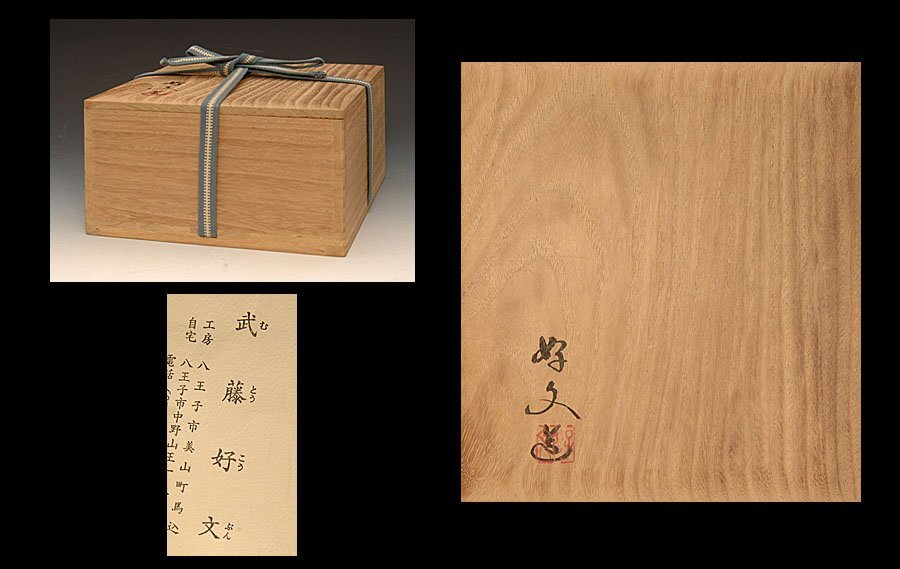 武藤好文
むとうこうぶん
工房 八王子市美山町馬込
自宅 八王子市中野山王一
電話
好文造